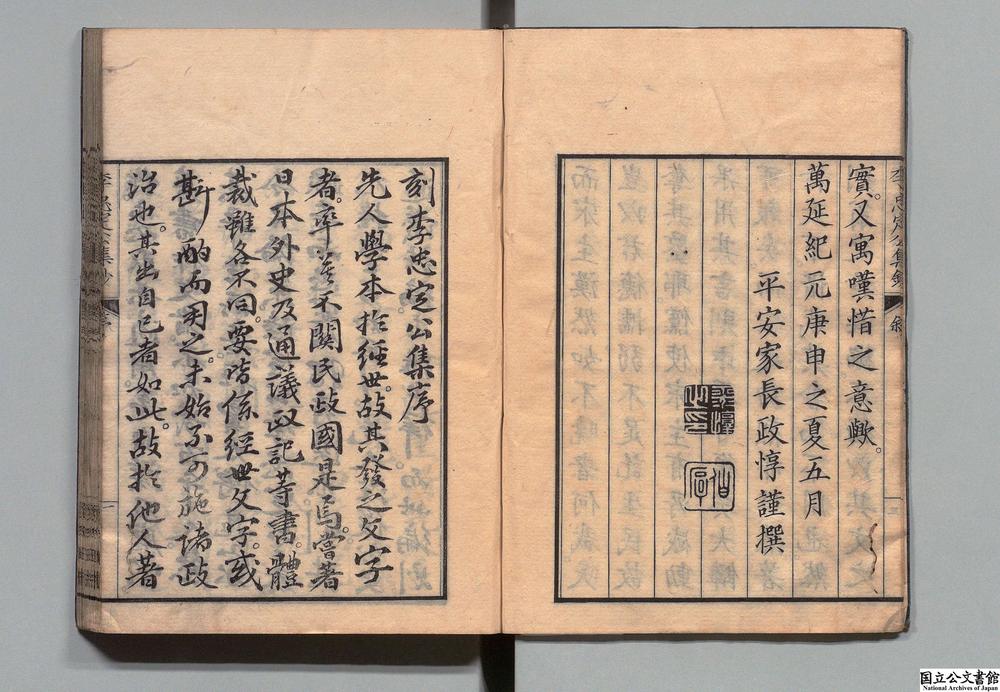 實。又寓嘆惜之意歟。
萬延紀元庚申之夏五月
平安家長政惇謹撰
刻李忠定公集序
先人學本於經世。故其發之文字
者。率莫不關民政國是焉。嘗著
日本外史及通議政記等書。體
裁雖各不同。要皆係經世文字。或
斟酌而用之。未始不可施諸政
治也。其出自己者如此。故於他人著
国立公文書館
National Archives of Japan